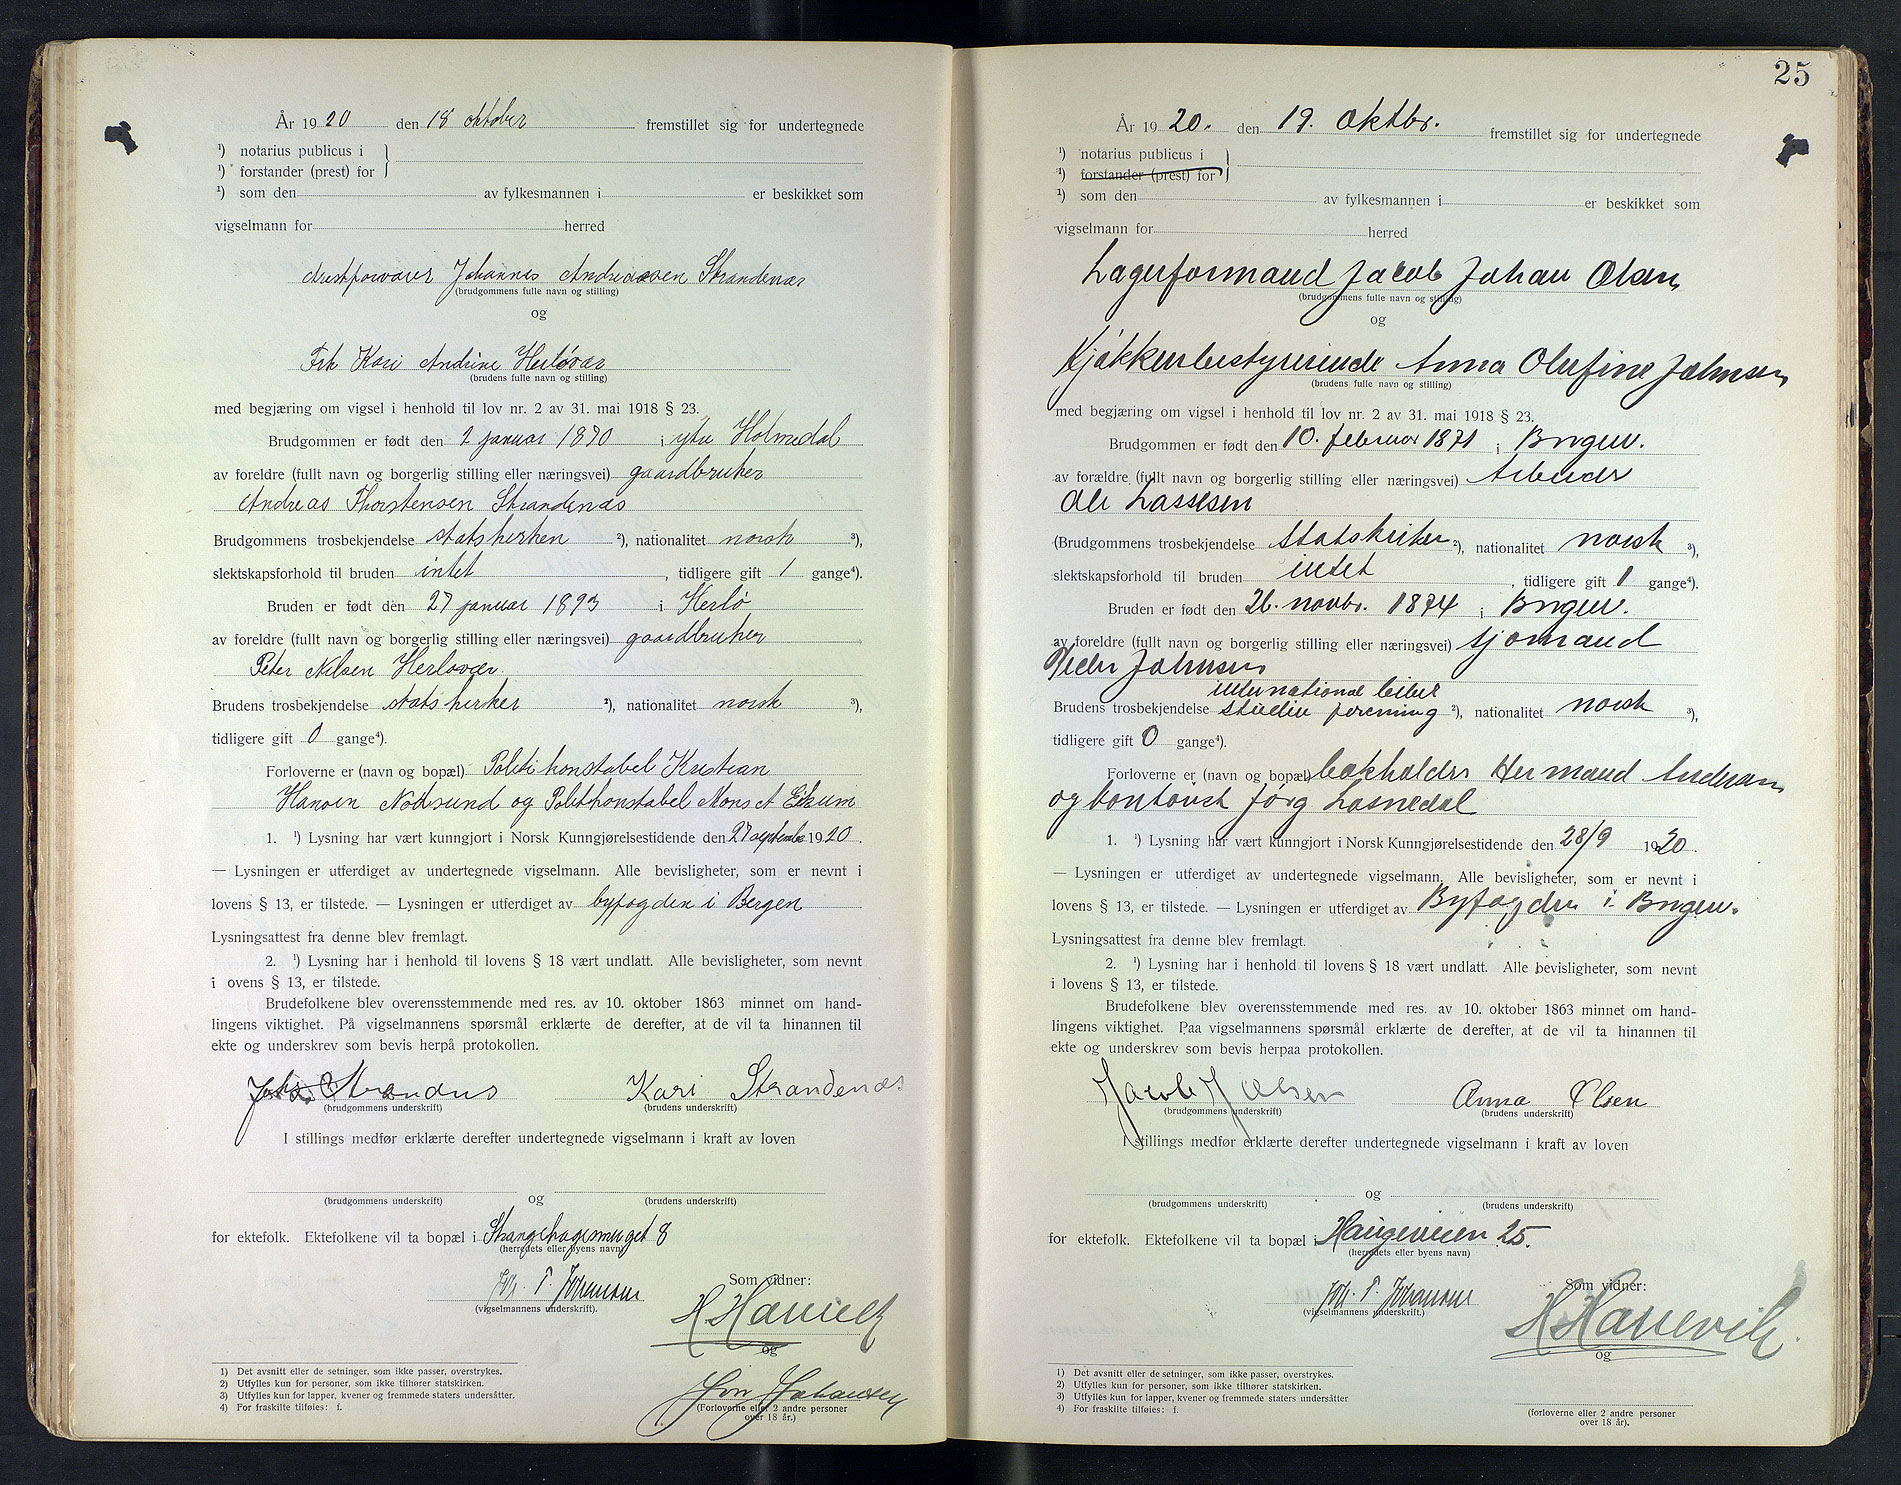 År 1920 den 18 oktober fremstillet sig for undertegnede
¹) notarius publicus i
¹) forstander (prest) for
¹) som den av fylkesmannen i er beskikket som
vigselmann for herred
Arrestforvarer Johannes Andreassen Strandenæs
(brudgommens fulle navn og stilling)
og
Frk Kari Andrine Herløvær
(brudens fulle navn og stilling)
med begjæring om vigsel i henhold til lov nr. 2 av 31. mai 1918 § 23.
Brudgommen er født den 2 januar 1890 i ytre Holmedal
av foreldre (fullt navn og borgerlig stilling eller næringsvei) gaardbruker
Andreas Thorstensen Strandenæs
Brudgommens trosbekjendelse statskirken ²), nationalitet norsk ³),
slektskapsforhold til bruden intet , tidligere gift 1 gange⁴).
Bruden er født den 27 januar 1893 i Herlø
av foreldre (fullt navn og borgerlig stilling eller næringsvei) gaardbruker
Peter Nilsen Herløvær
Brudens trosbekjendelse statskirken ²), nationalitet norsk ³),
tidligere gift 0 gange⁴).
Forloverne er (navn og bopæl) Politikonstabel Kristian
Hansen Nodsund og Politikonstabel Mons A Eikum
1. ¹) Lysning har vært kunngjort i Norsk Kunngjørelsestidende den 27 septembr 1920.
— Lysningen er utferdiget av undertegnede vigselmann. Alle bevisligheter, som er nevnt i
lovens § 13, er tilstede. — Lysningen er utferdiget av byfogden i Bergen
Lysningsattest fra denne blev fremlagt.
2. ¹) Lysning har i henhold til lovens § 18 vært undlatt. Alle bevisligheter, som nevnt
i ovens § 13, er tilstede.
Brudefolkene blev overensstemmende med res. av 10. oktober 1863 minnet om hand-
lingens viktighet. På vigselmannens spørsmål erklærte de derefter, at de vil ta hinannen til
ekte og underskrev som bevis herpå protokollen.
Johs Strandnæs Kari Strandenæs
(brudgommens underskrift) (brudens underskrift)
I stillings medfør erklærte derefter undertegnede vigselmann i kraft av loven
og
(brudgommens underskrift) (brudens underskrift)
for ektefolk. Ektefolkene vil ta bopæl i Strangehagesmuget 8
(herredets eller byens navn)
Joh. T. Johansen Som vidner:
(vigselmannens underskrift). H. Hanevik
og
Jon Johansen
(Forloverne eller 2 andre personer
over 18 år.)
1) Det avsnitt eller de setninger, som ikke passer, overstrykes.
2) Utfylles kun for personer, som ikke tilhører statskirken.
3) Utfylles kun for lapper, kvener og fremmede staters undersåtter.
4) For fraskilte tilføies: f.
25
År 1920. den 19. oktbr. fremstillet sig for undertegnede
¹) notarius publicus i
¹) forstander (prest) for
¹) som den av fylkesmannen i er beskikket som
vigselmann for herred
Lagerformand Jacob Johan Olsen
(brudgommens fulle navn og stilling)
og
Kjøkkenbestyrerinde Anna Olufine Johnsen
(brudens fulle navn og stilling)
med begjæring om vigsel i henhold til lov nr. 2 av 31. mai 1918 § 23.
Brudgommen er født den 10. februar 1871 i Bergen.
av forældre (fullt navn og borgerlig stilling eller næringsvei) Arbeider
Ole Lassesen
(Brudgommens trosbekjendelse statskirken ²), nationalitet norsk ³),
slektskapsforhold til bruden intet , tidligere gift 1 gange⁴).
Bruden er født den 26. novbr. 1874 i Bergen.
av foreldre (fullt navn og borgerlig stilling eller næringsvei) sjømand
Peder Johnsen
international bibel
Brudens trosbekjendelse studie forening ²), nationalitet norsk ³),
tidligere gift 0 gange⁴).
Forloverne er (navn og bopæl) bokholder Hermand Andersen
og kontorist Jørg Losnedal
1. ¹) Lysning har vært kunngjort i Norsk Kunngjørelsestidende den 28/9 1920.
— Lysningen er utferdiget av undertegnede vigselmann. Alle bevisligheter, som er nevnt i
lovens § 13, er tilstede. — Lysningen er utferdiget av Byfogden i Bergen.
Lysningsattest fra denne blev fremlagt.
2. ¹) Lysning har i henhold til lovens § 18 vært undlatt. Alle bevisligheter, som nevnt
i lovens § 13, er tilstede.
Brudefolkene blev overensstemmende med res. av 10. oktober 1863 minnet om hand-
lingens viktighet. Paa vigselmannens spørsmål erklærte de derefter, at de vil ta hinannen til
ekte og underskrev som bevis herpaa protokollen.
Jacob J Olsen Anna Olsen
(brudgommens underskrift) (brudens underskrift)
I stillings medfør erklærte derefter undertegnede vigselmann i kraft av loven
og
(brudgommens underskrift) (brudens underskrift)
for ektefolk. Ektefolkene vil ta bopæl i Haugeveien 25.
(herredets eller byens navn)
Joh. T. Johansen Som vidner:
(vigselmannens underskrift.) H Hanevik.
og
(forloverne eller 2 andre personer
over 18 år).
1) Det avsnitt eller de setninger, som ikke passer, overstrykes.
2) Utfylles kun for personer, som ikke tilhører statskirken.
3) Utfylles kun for lapper, kvener og fremmede staters undersåtter
4) For fraskilte tilføies: f.